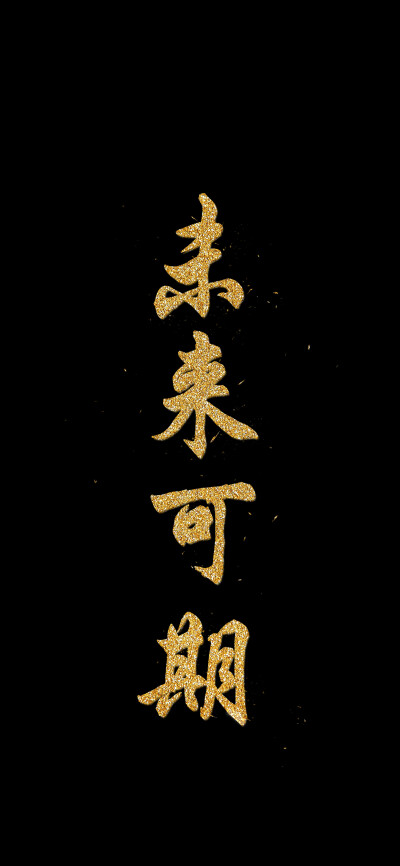 未来可期